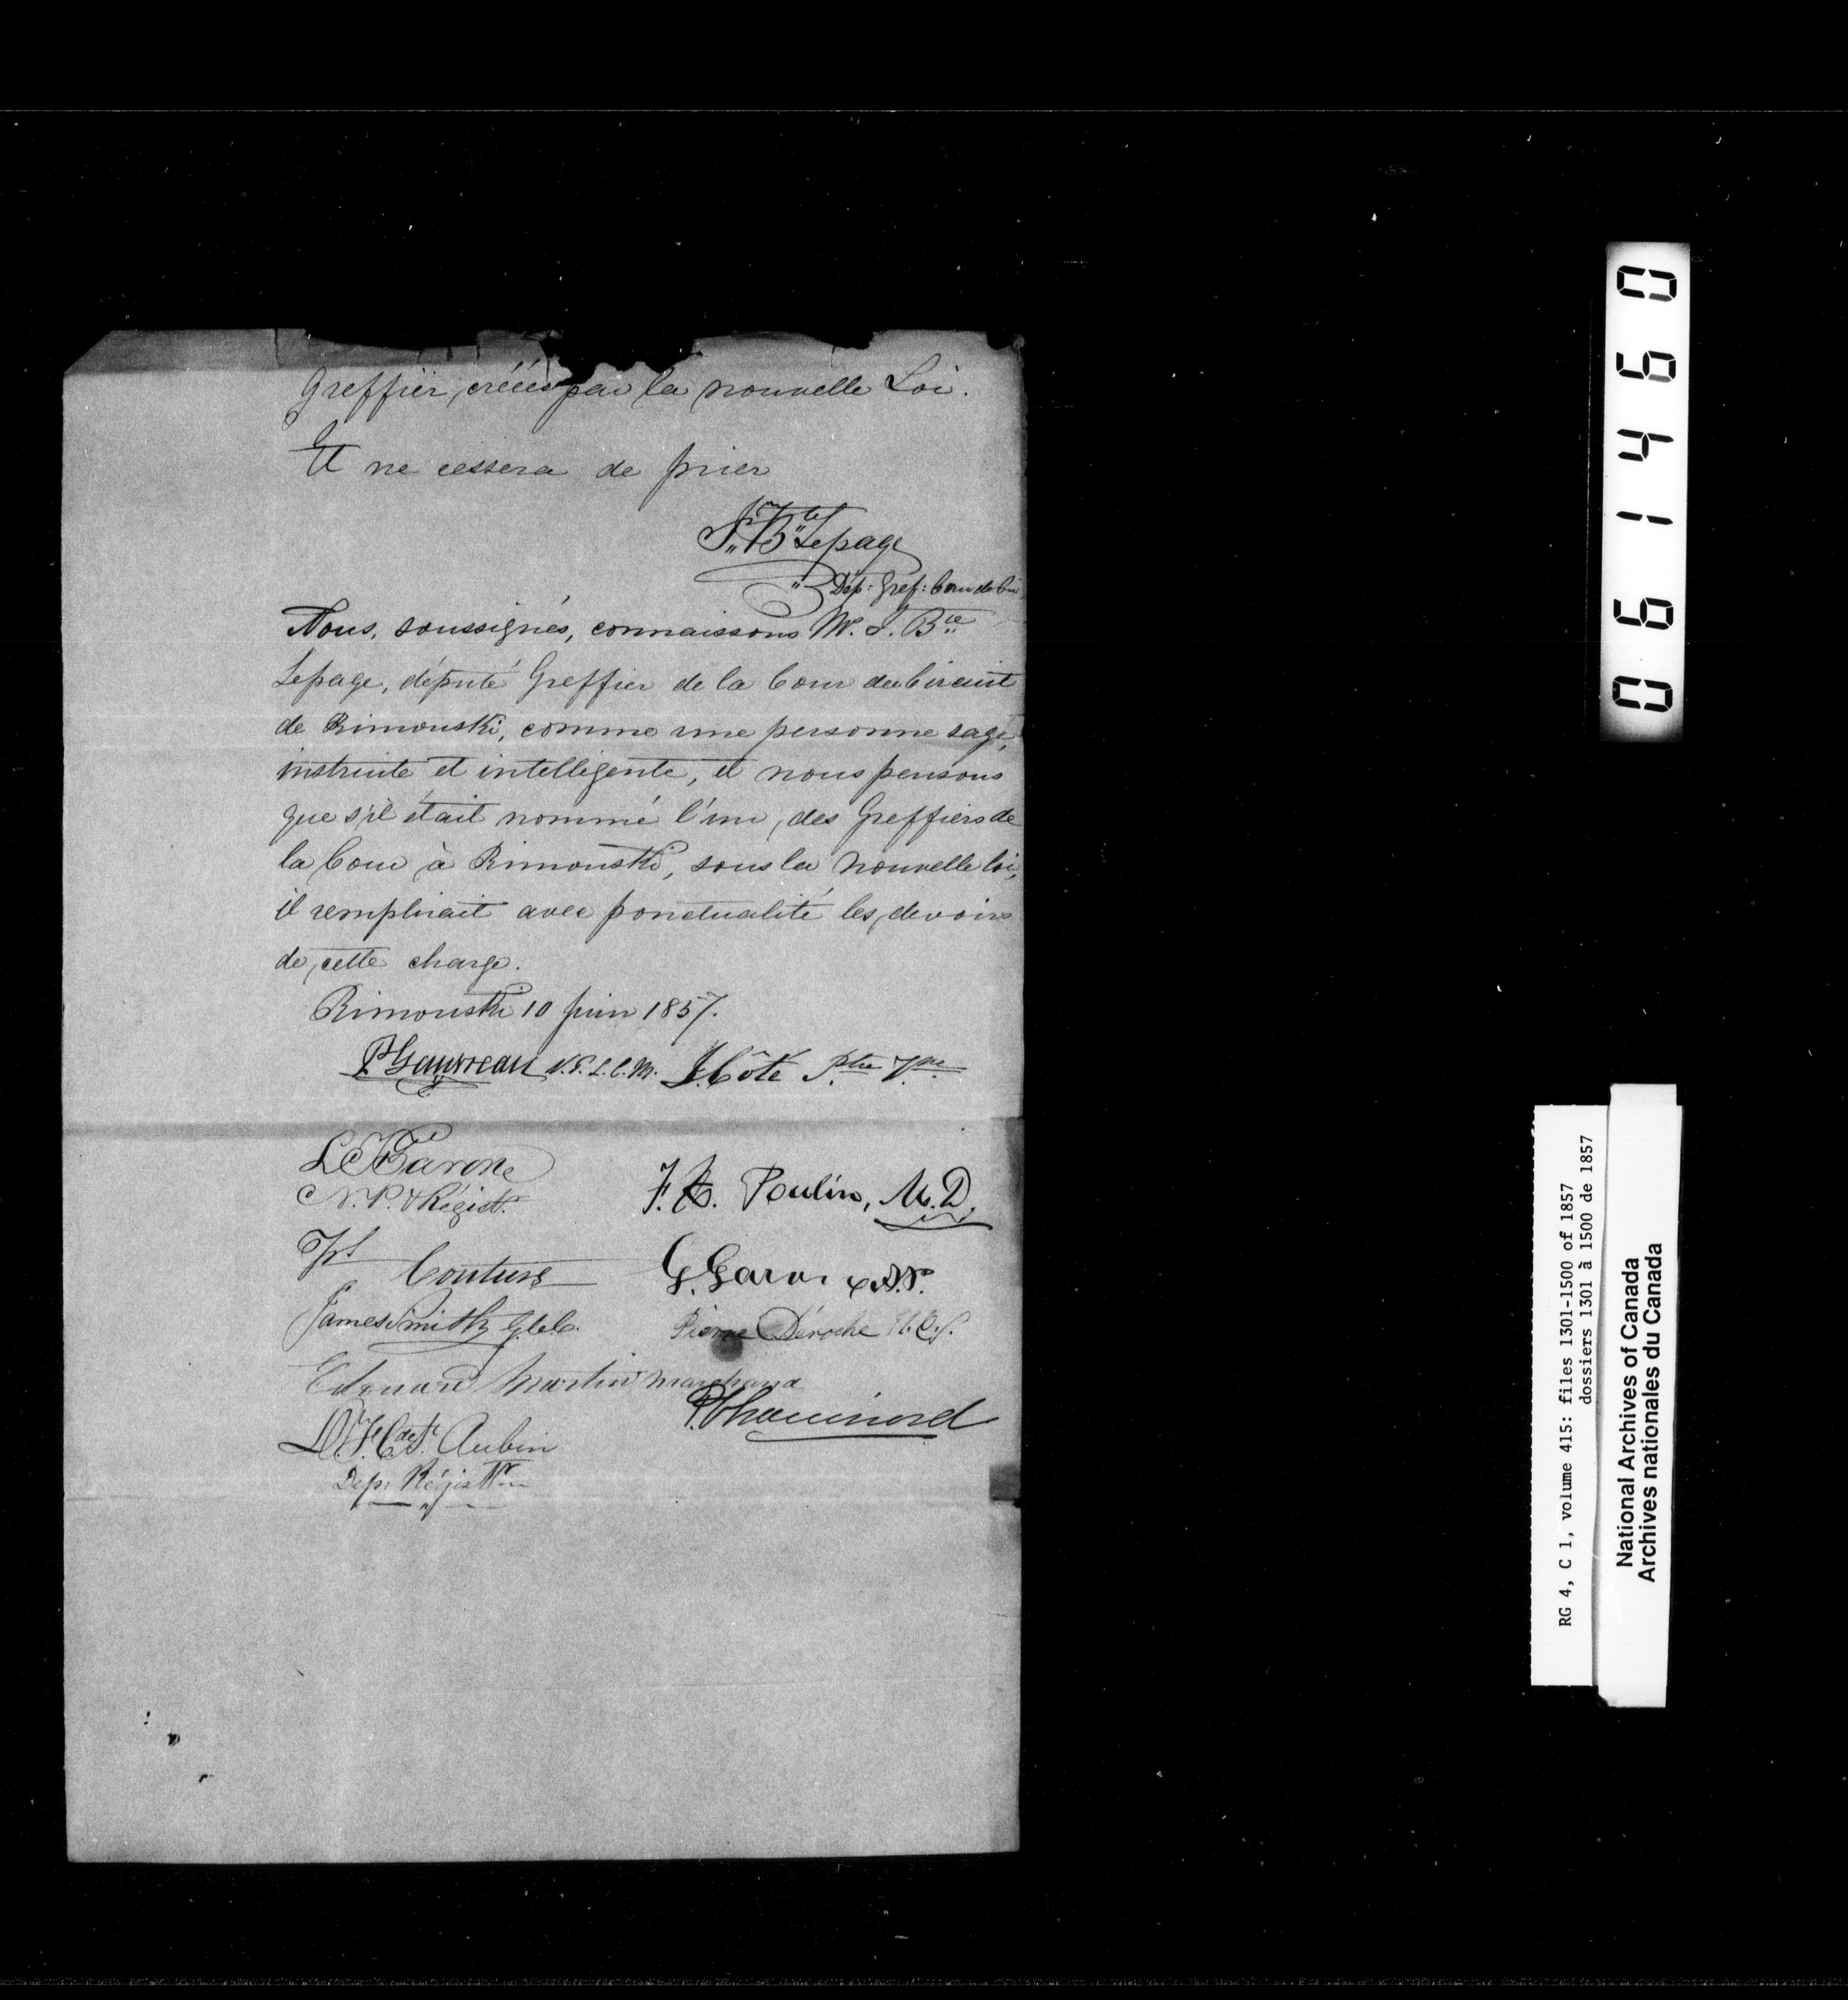 Greffier, créées par la nouvelle Loi.
Et ne cessera de prier
J. Bte Lepage
Dép: Gref: Cour de Cir
Nous, soussignés, connaissons Mr. J. Bte
Lepage, député Greffier de la Cour de Circuit
de Rimouski, comme une personne sage,
instruite et intelligente, et nous pensons
que s'il était nommé l'un, des Greffiers de
la Cour à Rimouski, sous la nouvelle loi,
il remplirait avec ponctualité les devoirs
de cette charge.
Rimouski 10 juin 1857.
P. Gauvreau N.P. L.C.M. J. Côté Ptre
L C Garon
N. P. & Régistr.
F. Poulin, M.D.
Couture
G. Garon
James Smith
Pierre Déroche
Edouard Martin marchand
P. Chouinord
Aubin
Dep: Régistr
061460
RG 4, C 1, volume 415: files 1301-1500 of 1857
dossiers 1301 à 1500 de 1857
National Archives of Canada
Archives nationales du Canada